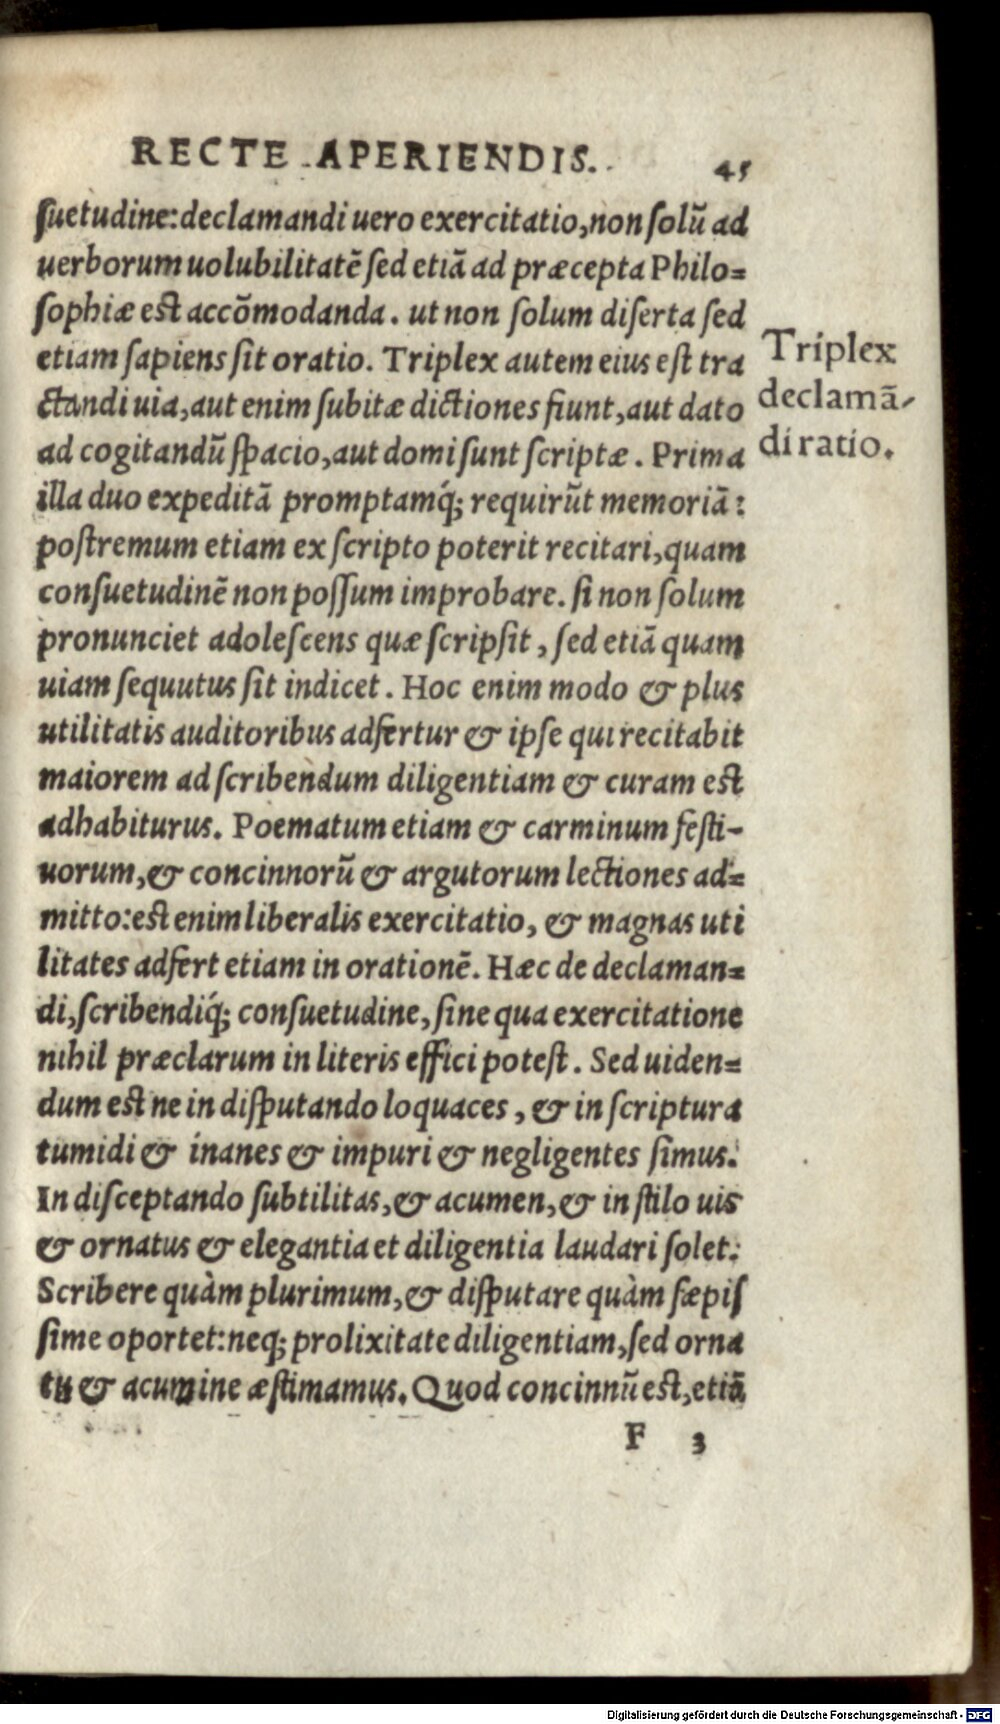 RECTE APERIENDIS. 45
suetudine:declamandi uero exercitatio,non solũ ad
uerborum uolubilitatẽ sed etiã ad præcepta Philo=
sophiæ est accõmodanda. ut non solum diserta sed
etiam sapiens sit oratio. Triplex autem eius est tra
ctandi uia,aut enim subitæ dictiones fiunt,aut dato
ad cogitandũ spacio,aut domi sunt scriptæ. Prima
illa duo expeditã promptamq́; requirũt memoriã:
postremum etiam ex scripto poterit recitari,quam
consuetudinẽ non possum improbare. si non solum
pronunciet adolescens quæ scripsit, sed etiã quam
uiam sequutus sit indicet. Hoc enim modo & plus
utilitatis auditoribus adfertur & ipse qui recitabit
maiorem ad scribendum diligentiam & curam est
adhabiturus. Poematum etiam & carminum festi-
uorum,& concinnorũ & argutorum lectiones ad=
mitto:est enim liberalis exercitatio, & magnas uti
litates adfert etiam in orationẽ. Hæc de declaman=
di,scribendiq́; consuetudine, sine qua exercitatione
nihil præclarum in literis effici potest. Sed uiden=
dum est ne in disputando loquaces, & in scriptura
tumidi & inanes & impuri & negligentes simus.
In disceptando subtilitas,& acumen,& in stilo uis
& ornatus & elegantia et diligentia laudari solet.
Scribere quàm plurimum,& disputare quàm sæpis
sime oportet:neq; prolixitate diligentiam,sed orna
tu & acumine æstimamus. Quod concinnũ est,etiã
F 3
Triplex
declamã-
di ratio.
Digitalisierung gefördert durch die Deutsche Forschungsgemeinschaft - DFG